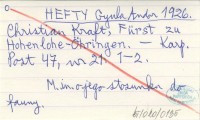 HEFTY Gyula Andor 1926.
Christian Kraft, Fürst zu
Hohenlohe-Öhringen. — Karp.
Post 47, nr 21: 1-2.
M.in. jego stosunku do
fauny.